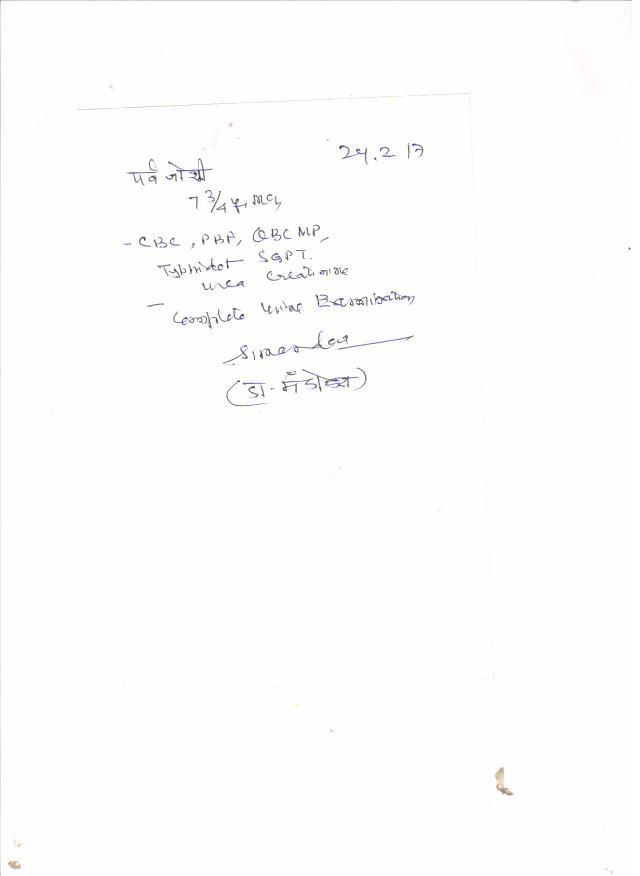 24.2.17
पर्व जोशी
7 3/4 yr, mch
- CBC, PBF, QBC MP,
Typhidot SGPT.
urea Creatinine
- Complete Urine Examination
(डा. मँडोव्हरा)